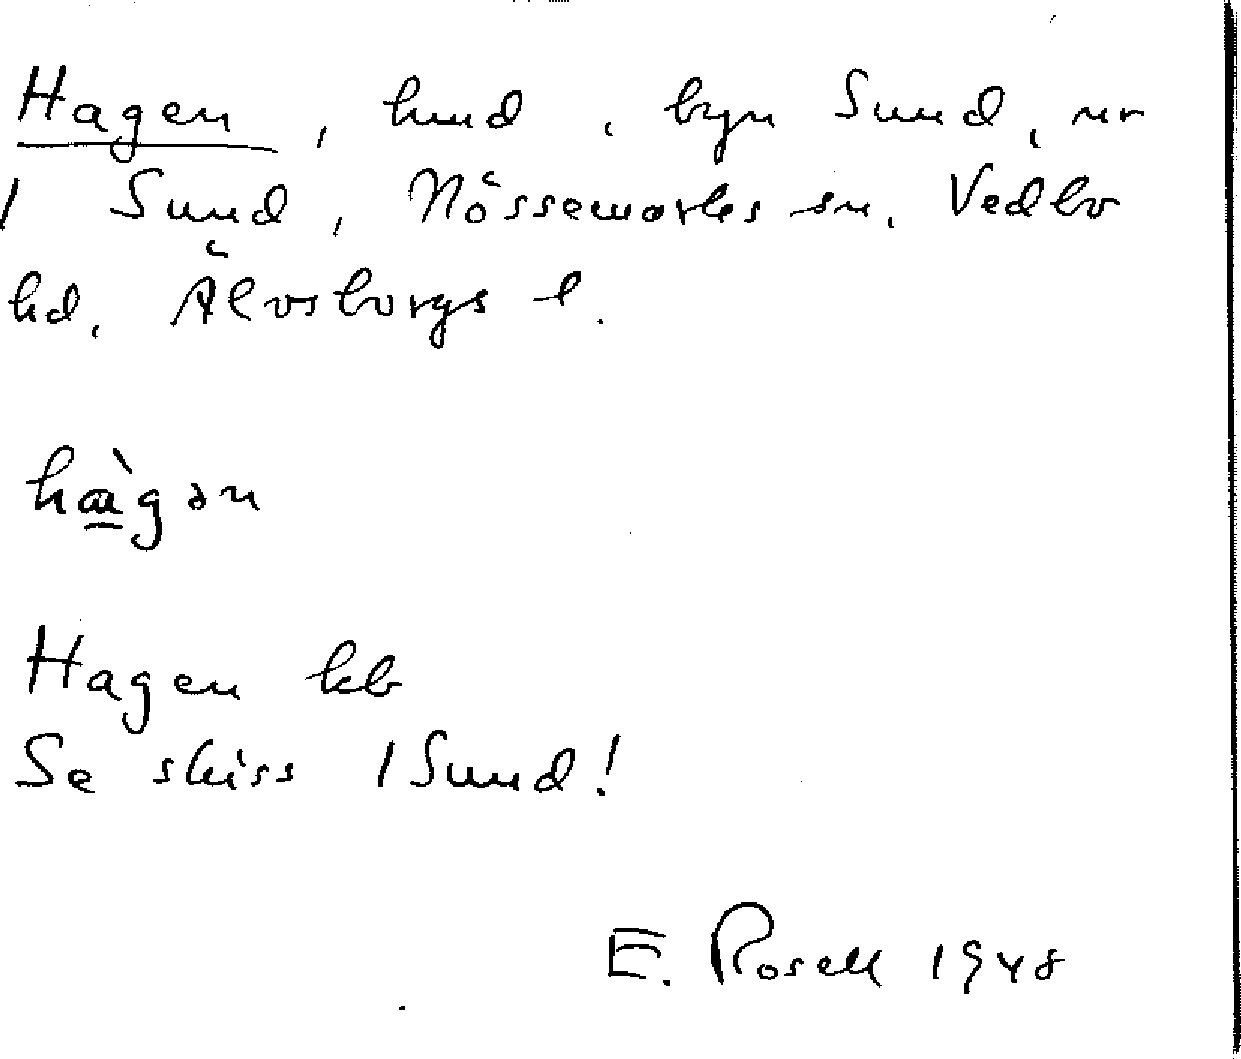 Hagen, hmd, byn Sund, nr
1 Sund, Nössemarks sn. Vedbo
hd, Älvsborgs l.
hɑ̲̀gən
Hagen kb
Se skiss 1 Sund!
E. Rosell 1948